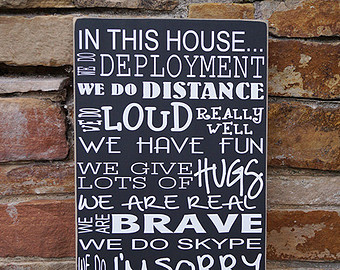 IN THIS HOUSE...
WE DO DEPLOYMENT
WE DO DISTANCE
WE DO LOUD REALLY WELL
WE HAVE FUN
WE GIVE LOTS OF HUGS
WE ARE REAL
WE ARE BRAVE
WE DO SKYPE
WE DO I'M SORRY